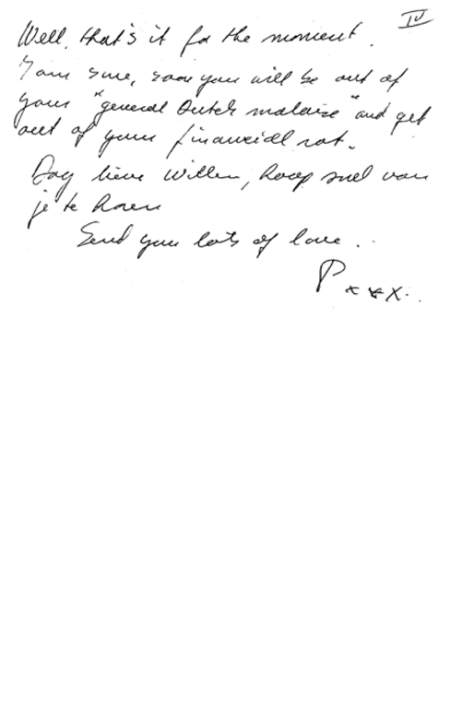 IV
Well, that's it for the moment.
I am sure, soon you will be out of
your "general Dutch malaise" and get
out of your financiall rot.
Dag lieve Willem, hoop snel van
je te horen
Send you lots of love..
P xxx..